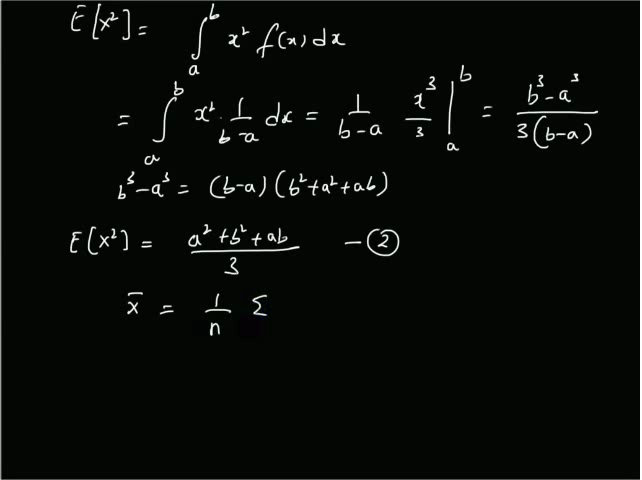 E[x²] = ∫ₐᵇ x² f(x) dx
= ∫ₐᵇ x² · 1/(b-a) dx = 1/(b-a) x³/3 |ₐᵇ = (b³-a³)/(3(b-a))
b³-a³ = (b-a) (b²+a²+ab)
E[x²] = (a²+b²+ab)/3 -②
x̄ = 1/n Σ